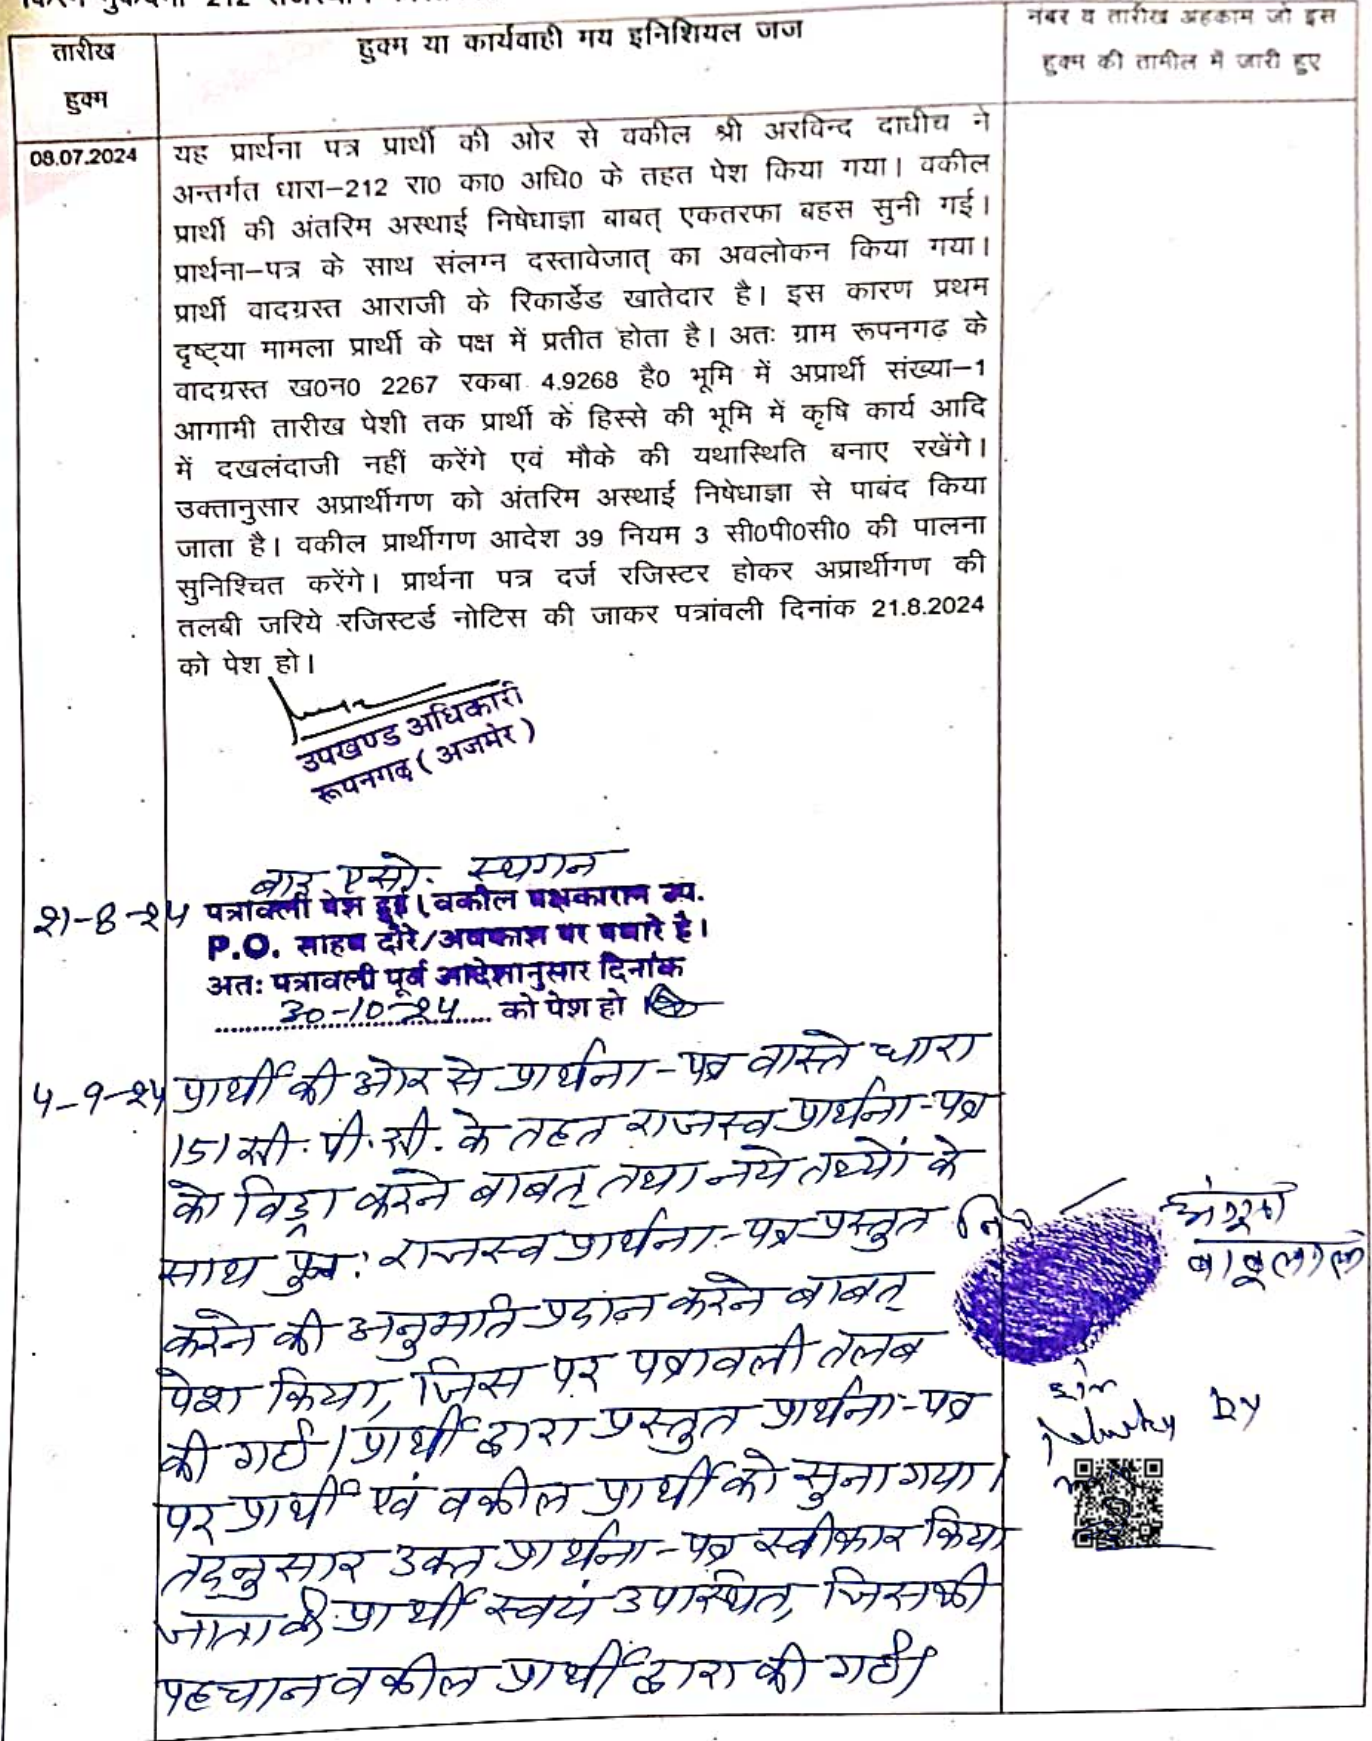 नंबर व तारीख अहकाम जो इस
हुक्म की तामील में जारी हुए
तारीख
हुक्म
हुक्म या कार्यवाही मय इनिशियल जज
08.07.2024
यह प्रार्थना पत्र प्रार्थी की ओर से वकील श्री अरविन्द दाधीच ने
अन्तर्गत धारा–212 रा0 का0 अधि0 के तहत पेश किया गया। वकील
प्रार्थी की अंतरिम अस्थाई निषेधाज्ञा बाबत् एकतरफा बहस सुनी गई।
प्रार्थना–पत्र के साथ संलग्न दस्तावेजात् का अवलोकन किया गया।
प्रार्थी वादग्रस्त आराजी के रिकार्डेड खातेदार है। इस कारण प्रथम
दृष्ट्या मामला प्रार्थी के पक्ष में प्रतीत होता है। अतः ग्राम रूपनगढ़ के
वादग्रस्त ख0न0 2267 रकबा 4.9268 है0 भूमि में अप्रार्थी संख्या–1
आगामी तारीख पेशी तक प्रार्थी कें हिस्से की भूमि में कृषि कार्य आदि
में दखलंदाजी नहीं करेंगे एवं मौके की यथास्थिति बनाए रखेंगे।
उक्तानुसार अप्रार्थीगण को अंतरिम अस्थाई निषेधाज्ञा से पाबंद किया
जाता है। वकील प्रार्थीगण आदेश 39 नियम 3 सी0पी0सी0 की पालना
सुनिश्चित करेंगे। प्रार्थना पत्र दर्ज रजिस्टर होकर अप्रार्थीगण की
तलबी जरिये रजिस्टर्ड नोटिस की जाकर पत्रांवली दिनांक 21.8.2024
को पेश हो।
उपखण्ड अधिकारी
रूपनगढ़ (अजमेर)
बार एसो. स्थगन
21-8-24 पत्रावली पेश हुई। वकील पक्षकारान उप.
P.O. साहब दौरे/अवकाश पर पधारे है।
अतः पत्रावली पूर्व आदेशानुसार दिनांक
30-10-24 को पेश हो।
4-9-24 प्रार्थी की ओर से प्रार्थना-पत्र वास्ते धारा
151 सी. पी. सी. के तहत राजस्व प्रार्थना-पत्र
को विड्रा करने बाबत् तथा नये तथ्यों के
साथ पुनः राजस्व प्रार्थना-पत्र प्रस्तुत
करने की अनुमति प्रदान करने बाबत्
पेश किया, जिस पर पत्रावली तलब
की गई। प्रार्थी द्वारा प्रस्तुत प्रार्थना-पत्र
पर प्रार्थी एवं वकील प्रार्थी को सुना गया।
तद्नुसार उक्त प्रार्थना-पत्र स्वीकार किया
जाता है. प्रार्थी स्वयं उपस्थित, जिसकी
पहचान वकील प्रार्थी द्वारा की गई।
नि
बाबूलाल
by